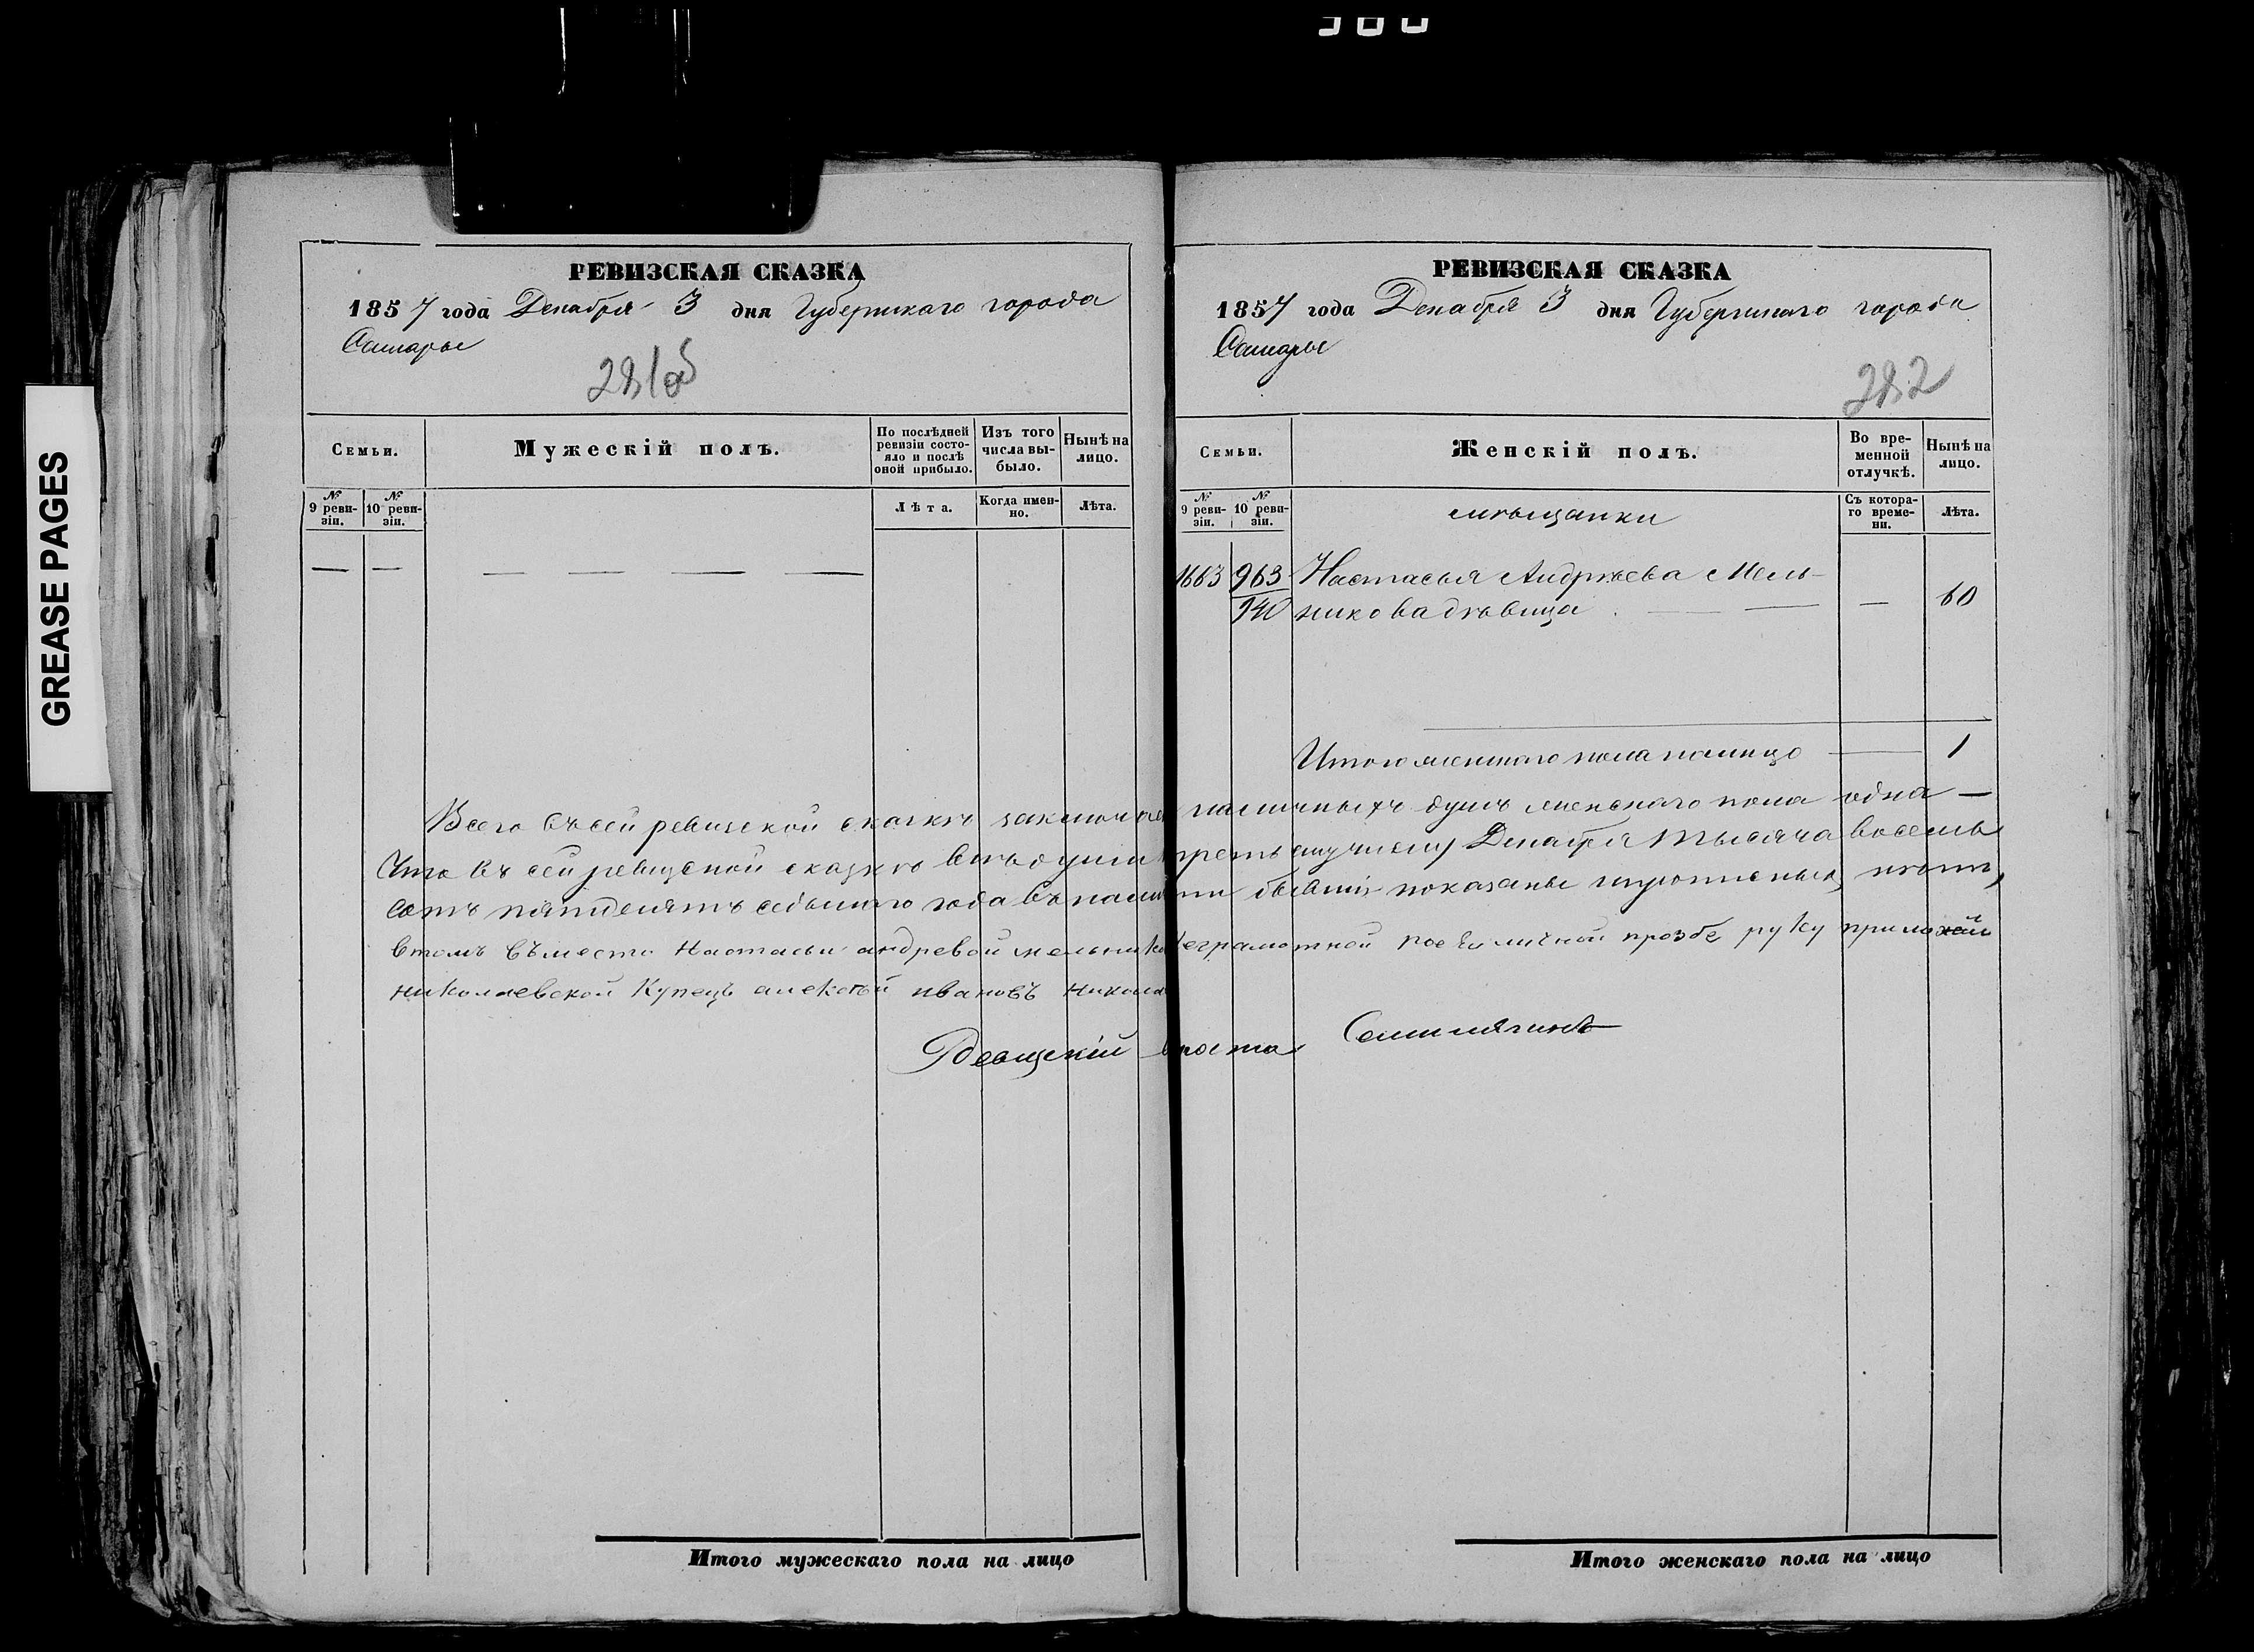 GREASE PAGES
РЕВИЗСКАЯ СКАЗКА
1857 года Декабря 3 дня Губернскаго города
Самары
281об
Семьи.
Мужескій полъ.
По послѣдней ревизіи состо-
яло и послѣ оной прибыло.
Изъ того числа вы-
было.
Нынѣ на лицо.
№ 9 реви-
зіи.
№ 10 реви-
зіи.
Лѣта.
Когда имен-
но.
Лѣта.
— — — — — —
РЕВИЗСКАЯ СКАЗКА
1857 года Декабря 3 дня Губернскаго города
Самары
282
Семьи.
Женскій полъ.
Во вре-
менной отлучкѣ.
Нынѣ на лицо.
№ 9 реви-
зіи.
№ 10 реви-
зіи.
мѣщанки
Съ котора-
го време-
ни.
Лѣта.
1663 963 Настасья Андрѣева Мель-
140 никова дѣвица — 60
Итого женскаго пола налицо — 1
Всего въ сей ревизской сказкѣ наличныхъ душъ женскаго пола одна —
Что въ сей ревизской сказкѣ всѣ души Декабря тысяча восемь
сотъ пятьдесятъ седьмого года показаны
втомъ въместо Настасьи андревой неграмотной поеѣ личной прозбе руку
николаевской Купецъ алексѣй ивановъ
Ревизскій
Итого мужескаго пола на лицо
Итого женскаго пола на лицо